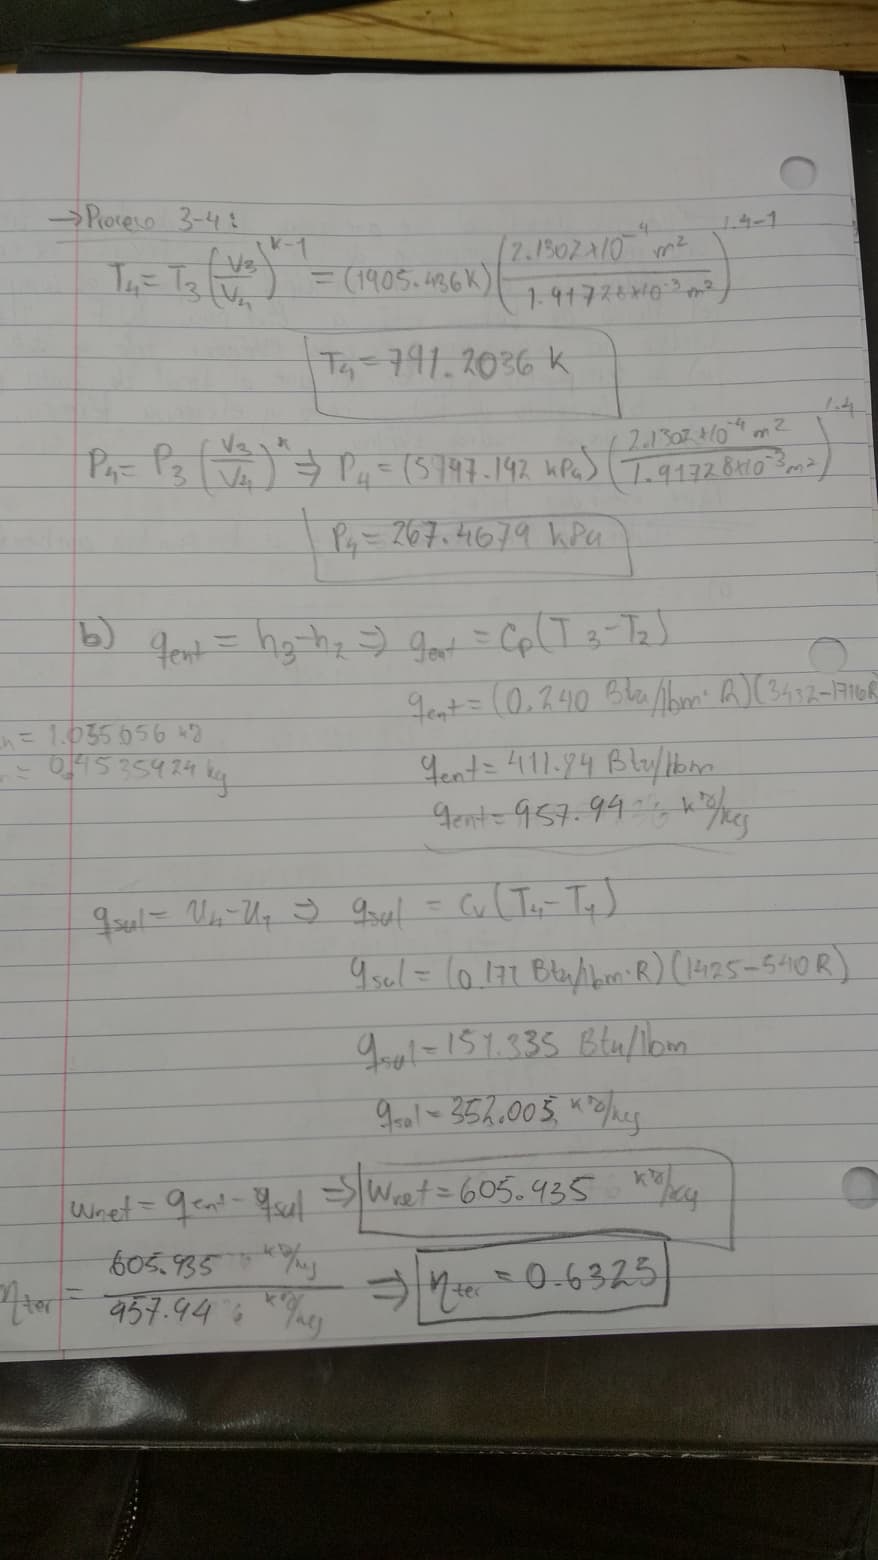 →Proceso 3-4:
T₄ = T₃ (V₃/V₄)^(k-1) = (1905.436K) (2.1302×10⁻⁴ m² / 1.91728×10⁻³ m²)^(1.4-1)
T₄ = 791.2036 K
P₄ = P₃ (V₃/V₄)^k ⇒ P₄ = (5797.142 kPa) (2.1302×10⁻⁴ m² / 1.91728×10⁻³ m²)^1.4
P₄ = 267.4679 kPa
b) qent = h₃-h₂ ⇒ qent = Cp(T₃-T₂)
qent = (0.240 Btu/lbm·R)(3432-1716R
= 1.055056 kJ
= 0.4535924 kg
qent = 411.84 Btu/lbm
qent = 957.94 kJ/kg
qsal = u₄-u₁ ⇒ qsal = Cv(T₄-T₁)
qsal = (0.171 Btu/lbm·R)(1425-540R)
qsal = 151.335 Btu/lbm
qsal = 352.005 kJ/kg
wnet = qent - qsal ⇒ wnet = 605.935 kJ/kg
ηter = 605.935 kJ/kg / 957.94 kJ/kg ⇒ ηter = 0.6325